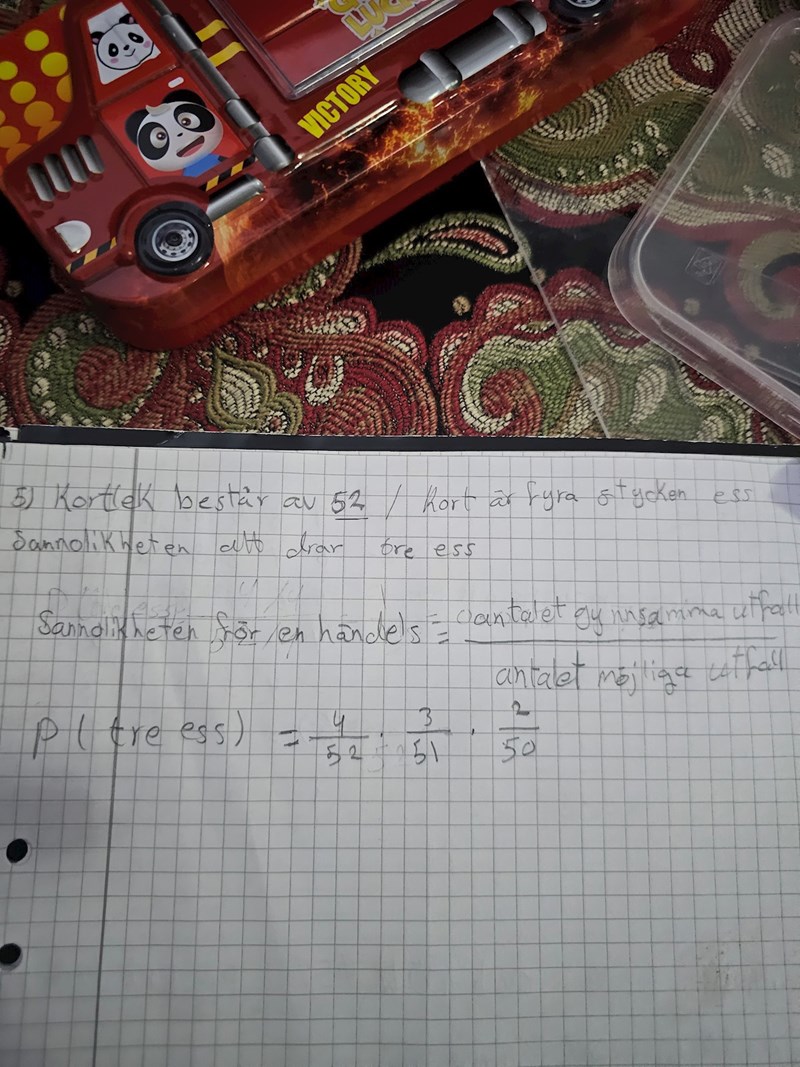 LUCK
VICTORY
5) Kortlek består av 52 / Kort är fyra stycken ess
Sannolikheten att drar tre ess
Sannolikheten för en händels = antalet gynnsamma utfall
antalet möjliga utfall
P ( tre ess ) = 4/52 · 3/51 · 2/50